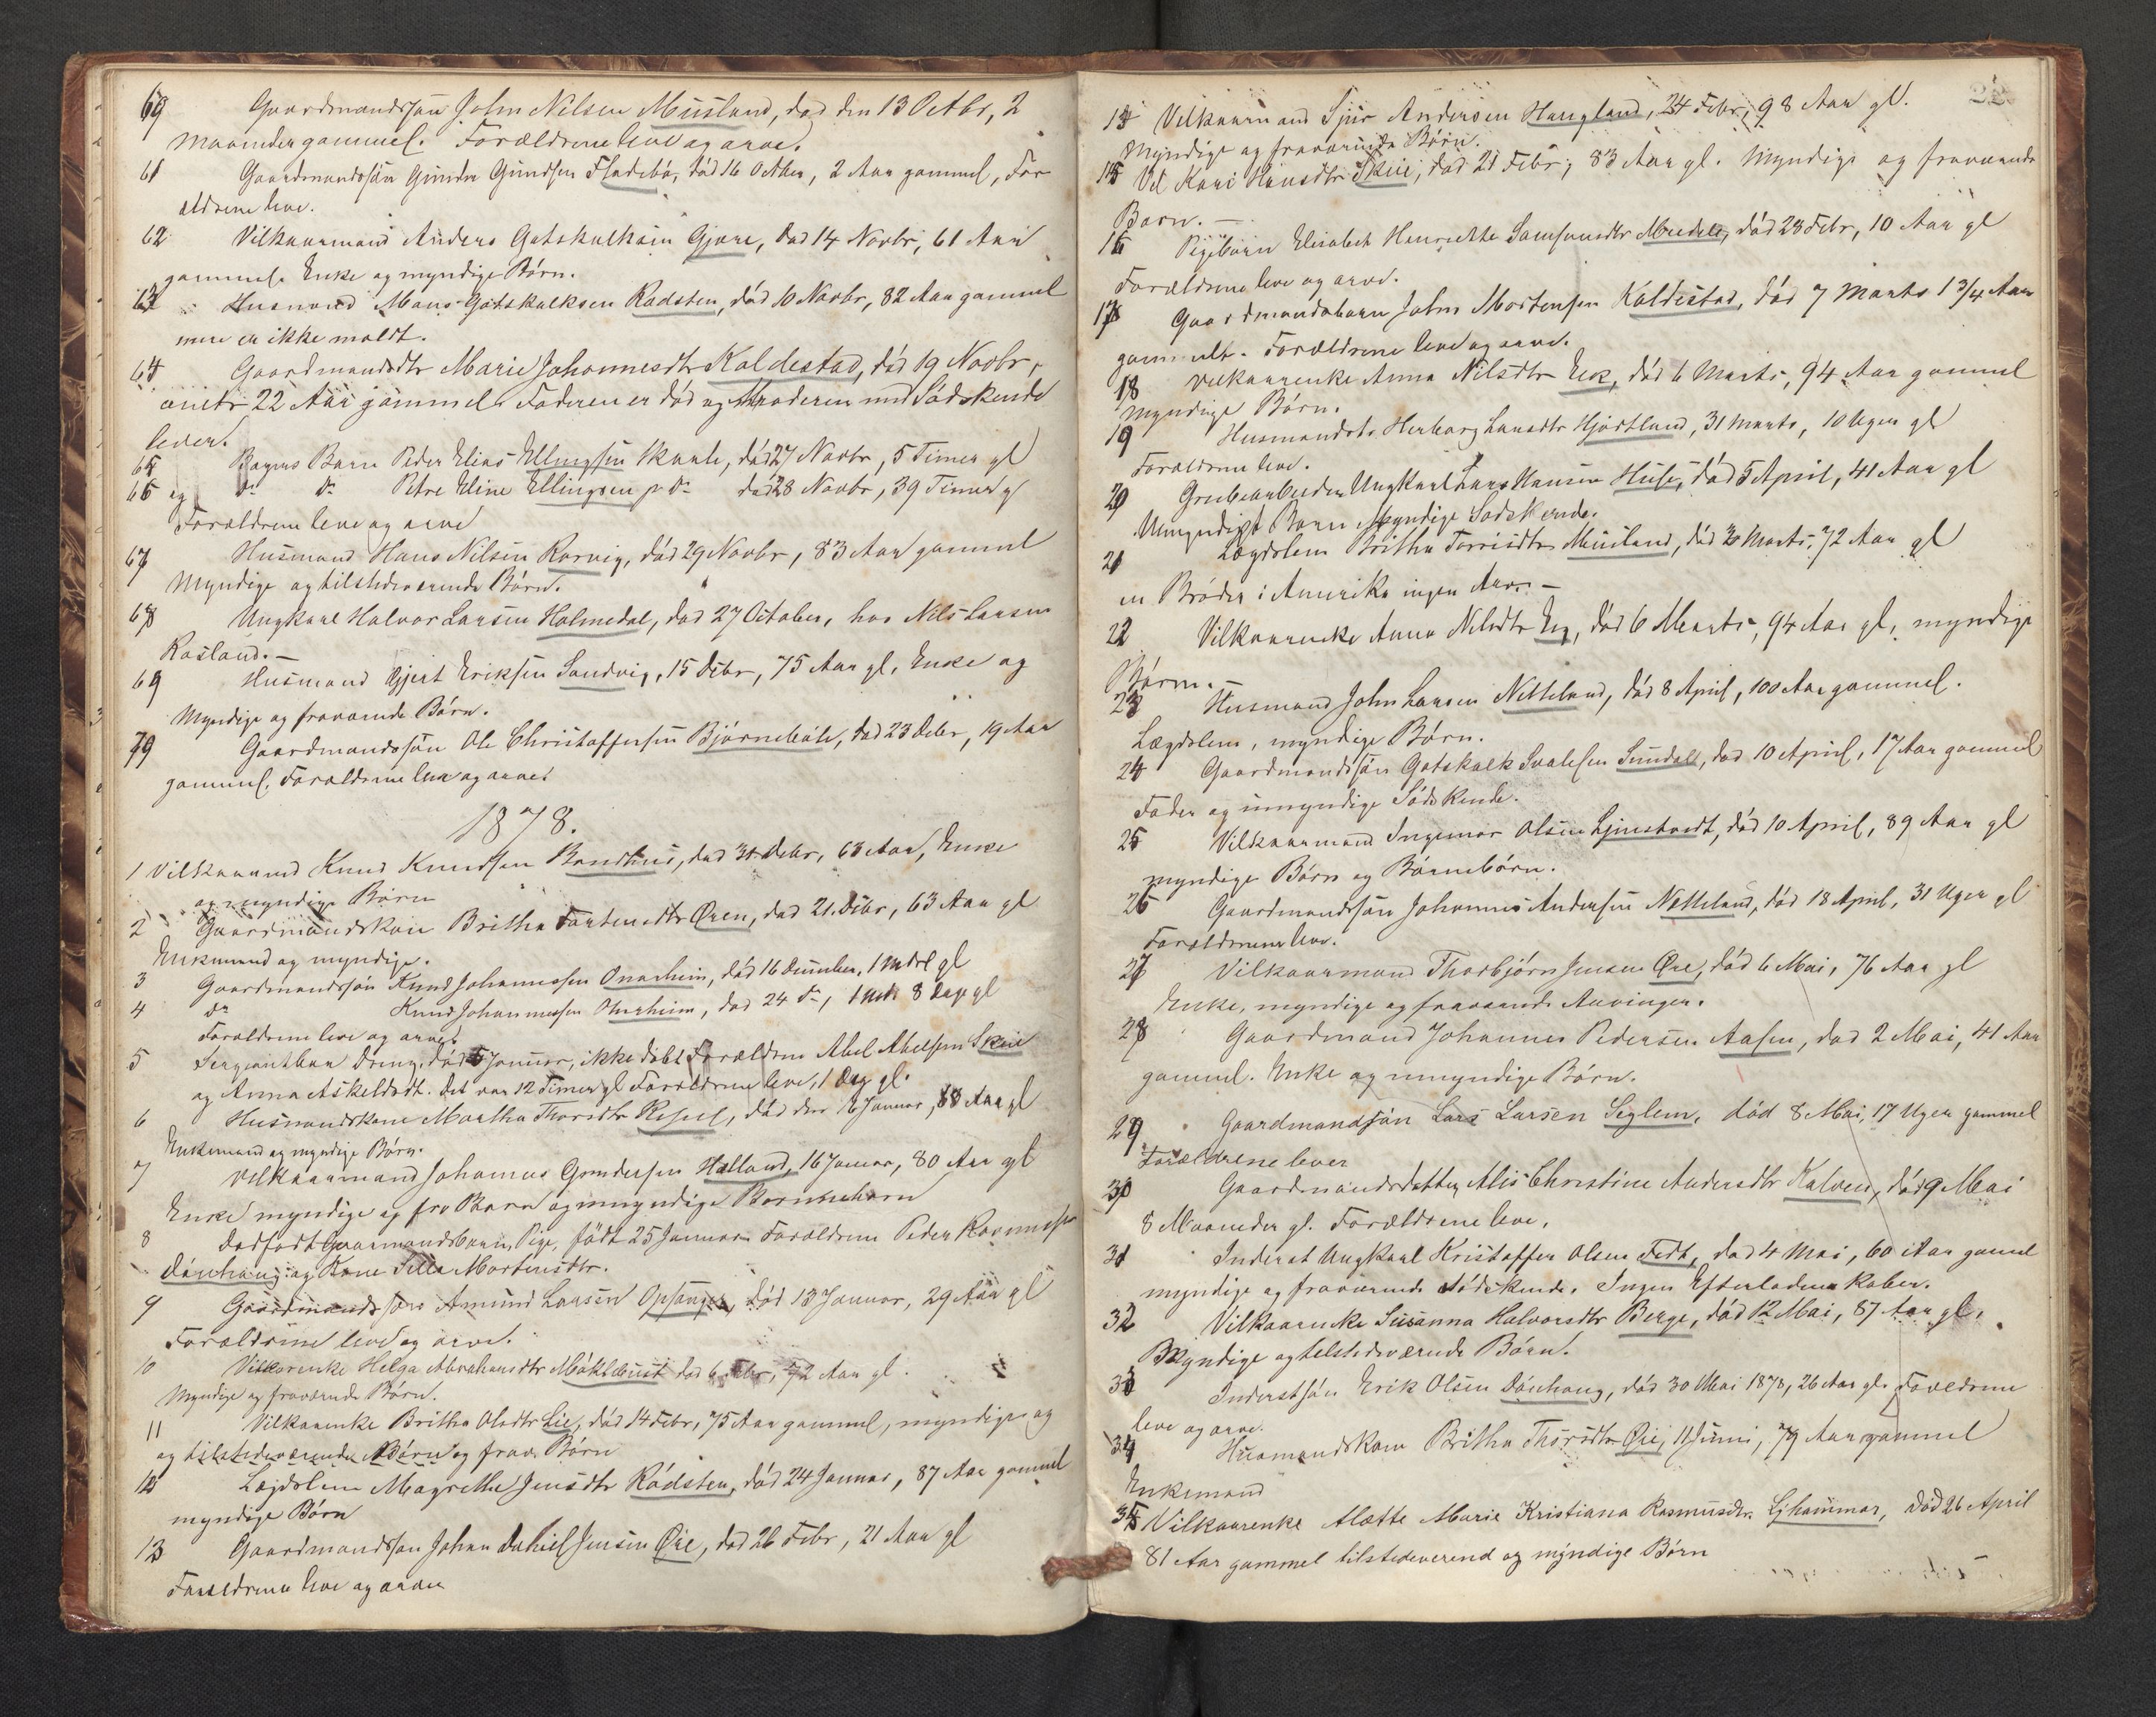 69 Gaardmandssøn John Nilsen Musland, død den 13 Octbr, 2
Maaneder gammel. Forældrene leve og arve.
61 Gaardmandssøn Gunder Gundersen Fladebø, død 16 Octber, 2 Aar gammel, For
ældrene leve.
62 Vilkaarmand Anders Gotskalksen Gjere, død 14 Novbr, 61 Aar
gammel. Enke og myndige Børn.
63 Husmand Mons Gotskalksen Rødsten, død 10 Novbr, 82 Aar gammel
mere er ikke meldt.
64 Gaardmandsdtr Marie Johannesdtr Kaldestad, død 19 Novbr,
22 Aar gammel. Faderen er død og Moderen med Sødskende
lever.
65 Børn Peder Elias Ellingsen Skaale, død 27 Novbr, 5 Timer gl
66 og do do Petre Eline Ellingsen do død 28 Novbr, 39 Timer gl
Forældrene leve og arve
67 Husmand Hans Nilsen Rørvig, død 29 Novbr, 83 Aar gammel
Myndige og tilstedeværende Børn.
68 Ungkarl Halvor Larsen Holmedal, død 27 October, hos Nils Larsen
Røsland. –
69 Husmand Gjert Eriksen Sandvig, 15 Debr, 75 Aar gl, Enke og
Myndige og fraværende Børn.
79 Gaardmandssøn Ole Christoffersen Bjørnebøle, død 23 Debr, 19 Aar
gammel. Forældrene leve og arve.
1878.
1 Vilkaarmd Knud Knudsen Bondhus, død 31 Debr, 63 Aar, Enke
og myndige Børn
2 Gaardmandskone Britha Torstensdtr Øren, død 21 Debr, 63 Aar gl
Enkemand og myndige.
3 Gaardmandssøn Knud Johannessen Onarheim, død 16 December, 1 gl
4 do Knud Johannessen Onarheim, død 24 do, 8 Dage gl
Forældrene leve og arve.
5 Sergeantbarn Dreng, død 5 Januar, ikke døbt Forældrene Abel Abelsen Skeie
og Anna Askeldsdt. Det var 12 Timer gl Forældrene leve, 1 Dag gl.
6 Husmandskone Martha Thoresdtr, død den 6 Januar, 88 Aar gl
Enkemand og myndige Børn.
7 Vilkaarmand Johannes Gundersen Halland, 16 Januar, 80 Aar gl
Enke myndige og frav Børn og umyndige Børnebørn
8 Dødfødt Gaardmandsbarn, Pige, født 25 Januar. Forældrene Peder Rasmussen
Dønhaug og Kone Sille Mortensdtr.
9 Gaardmandssøn Amund Larsen Opsanger, død 13 Januar, 29 Aar gl
Forældrene leve og arve.
10 Vilkorenke Helga Abrahamsdtr Møklebust død 6 Febr, 72 Aar gl.
Myndige og fraværende Børn.
11 Vilkaarenke Britha Olsdtr Lie, død 14 Febr, 75 Aar gammel, myndige og
og tilstedeværende Børn og frav. Børn
12 Lægdslem Magrethe Jensdtr Rødsten, død 24 Januar, 87 Aar gammel
myndige Børn
13 Gaardmandssøn Johan Daniel Jensen Øie, død 26 Febr, 21 Aar gl
Forældrene leve og arver
22
14 Vilkaarmand Sjur Andersen Haugland, 24 Febr, 98 Aar gl.
Myndige og fraværende Børn.
15 Vil Kari Hansdtr Skeie, død 21 Febr, 83 Aar gl. Myndige og fraværende
Børn. –
16 Pigebarn Elisabet Henriette Samsonsdtr Medels, død 23 Febr, 10 Aar gl
Forældrene leve og arve.
17 Gaardmandsbarn John Mortensen Kaldestad, død 7 Marts 1 3/4 Aar
gammelt. Forældrene leve og arve.
18 Vilkaarenke Anna Nilsdtr Eik, død 6 Marts, 94 Aar gammel
Myndige Børn.
19 Husmandsdtr Herborg Larsdtr Hjortland, 31 Marts, 10 Uger gl
Forældrene leve.
20 Grubearbeider Ungkarl Lars Hansen Huse, død 5 April, 41 Aar gl
Umyndigt Barn Myndige Sødskende.
21 Lægdslem Britha Torrisdtr Musland, død Marts, 72 Aar gl
en Broder i Amerika ingen Arv. –
22 Vilkaarenke Anna Nilsdtr Eig, død 6 Marts, 94 Aar gl, myndige
Børn. –
23 Husmand John Larsen Netteland, død 8 April, 100 Aar gammel.
Lægdslem, myndige Børn.
24 Gaardmandssøn Gotskalk Svalesen Sundal, død 10 April, 17 Aar gammel
Fader og umyndige Sødskende.
25 Vilkaarmand Ingemar Olsen Ljinstvedt, død 10 April, 89 Aar gl
myndige Børn og Børnebørn.
26 Gaardmandssøn Johannes Andersen Netteland, død 18 April, 31 Uger gl
Forældrene leve.
27 Vilkaarmand Thorbjørn Jensen Øie, død 6 Mai, 76 Aar gl
Enke, myndige og fraværende Arvinger.
28 Gaardmand Johannes Pedersen Aasen, død 2 Mai, 41 Aar
gammel. Enke og umyndige Børn.
29 Gaardmandsøn Lars Larsen Seglem, død 8 Mai, 17 Uger gammel
Forældrene lever
30 Gaardmandsdatter Alis Christine Andersdtr Kalven, død 9 Mai
8 Maaneder gl. Forældrene leve.
31 Inderst Ungkarl Kristoffer Olsen Tedt, død 4 Mai, 60 Aar gammel
myndige og fraværende Sødskende. Ingen Efterladenskaber.
32 Vilkaarenke Susanna Halvorsdtr Berge, død 12 Mai, 87 Aar gl.
Myndige og tilstedeværende Børn.
33 Inderstsøn Erik Olsen Dønhaug, død 30 Mai 1878, 26 Aar gl. Foreldrene
leve og arve.
34 Husmandskone Britha Thorsdtr Øie, 11 Juni, 79 Aar gammel
Enkemand
35 Vilkaarenke Alætte Marie Kristiana Rasmusdtr. Ljhammar, død 26 April
81 Aar gammel tilstedeverend og myndige Børn